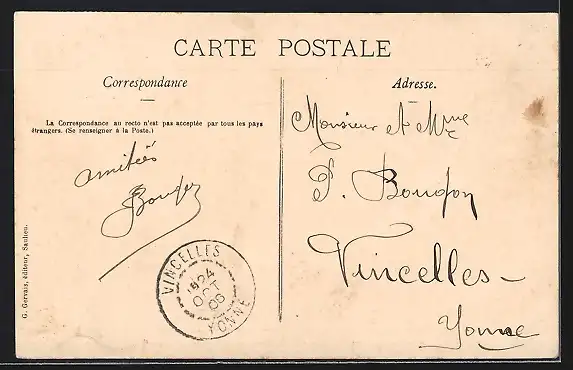 CARTE POSTALE
Correspondance
La Correspondance au recto n'est pas acceptée par tous les pays
étrangers. (Se renseigner à la Poste.)
amitiés
G. Gervais, éditeur, Saulieu.
VINCELLES
24
OCT
06
YONNE
Adresse.
Monsieur et Mme
P.
Vincelles -
Yonne